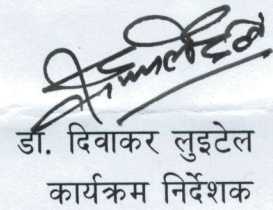 डा. दिवाकर लुइटेल
कार्यक्रम निर्देशक